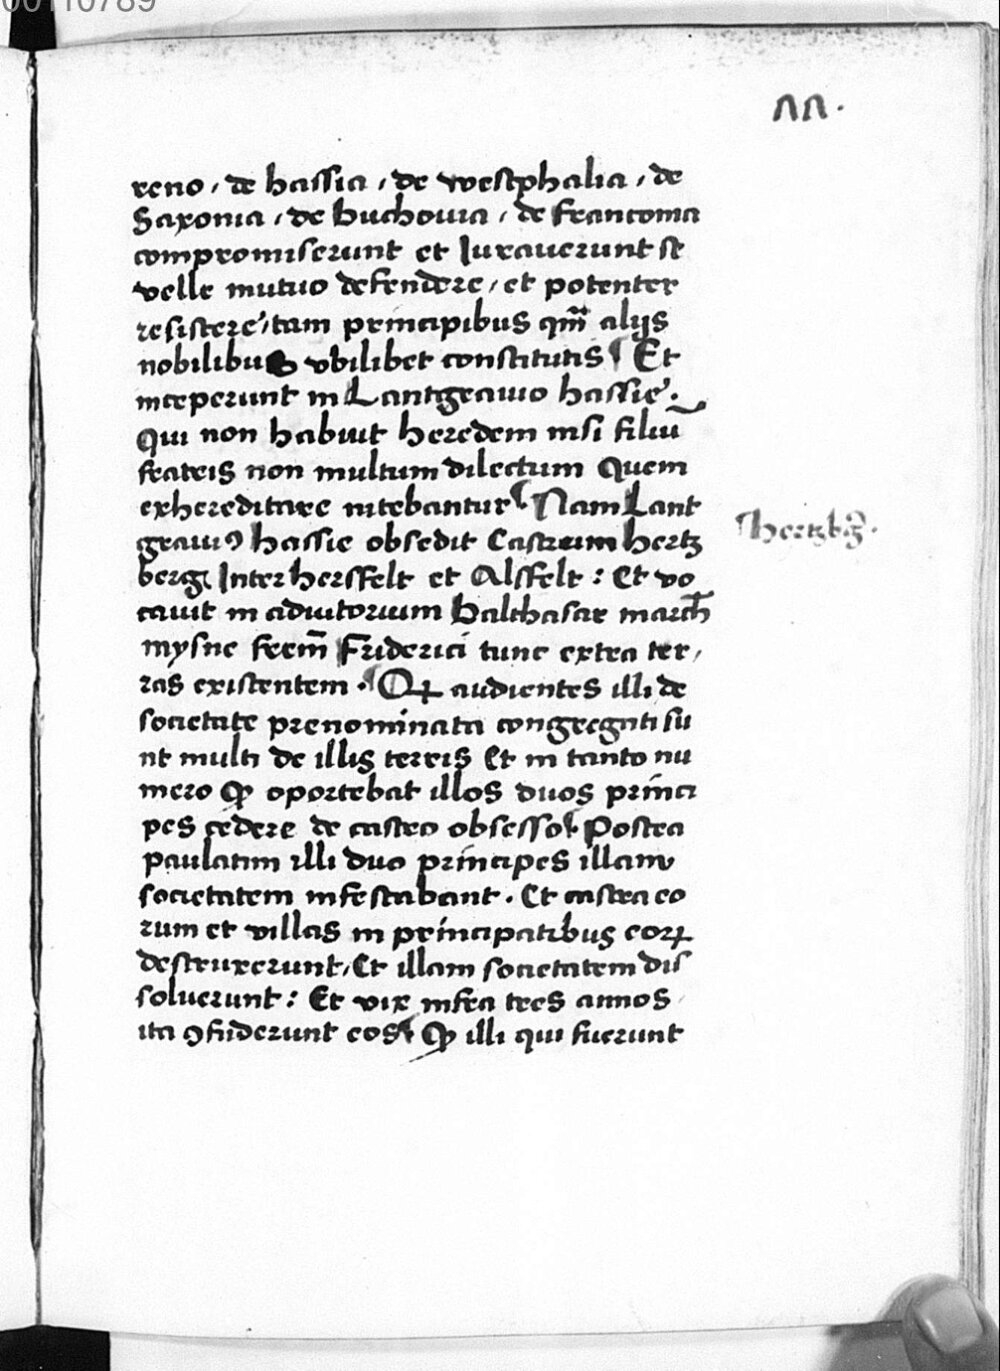 00110789
77.
reno, de hassia, de westphalia, de
Saxonia, de buchouia, de franconia
compromiserunt et Iurauerunt se
velle mutuo defendere, et potenter
resistere, tam principibus qm̃ alijs
nobilibus vbilibet constitutis Et
inceperunt in Lantgrauio hassie.
Qui non habuit heredem nisi filiū
fratris non multum dilectum Quem
exhereditare nitebantur Nam Lant
grauiꝯ hassie obsedit Castrum hertz
hertzbg̃.
berg Inter hersfelt et Alsfelt : Et vo
cauit in adiutorium balthasar march̄
mysne frem̄ Friderici tunc extra ter,
ras existentem . Qꝝ audientes illi de
societate prenominata congregati su
nt multi de illis terris Et in tanto nu
mero ꝙ oportebat illos duos princi
pes cedere de castro obsesso Postea
paulatim illi duo principes illam
societatem infestabant . Et castra eo
rum et villas in principatibus eoꝝ
destruxerunt, Et illam societatem dis
soluerunt : Et vix infra tres annos
ita ꝯfuderunt eos ꝙ illi qui fuerunt